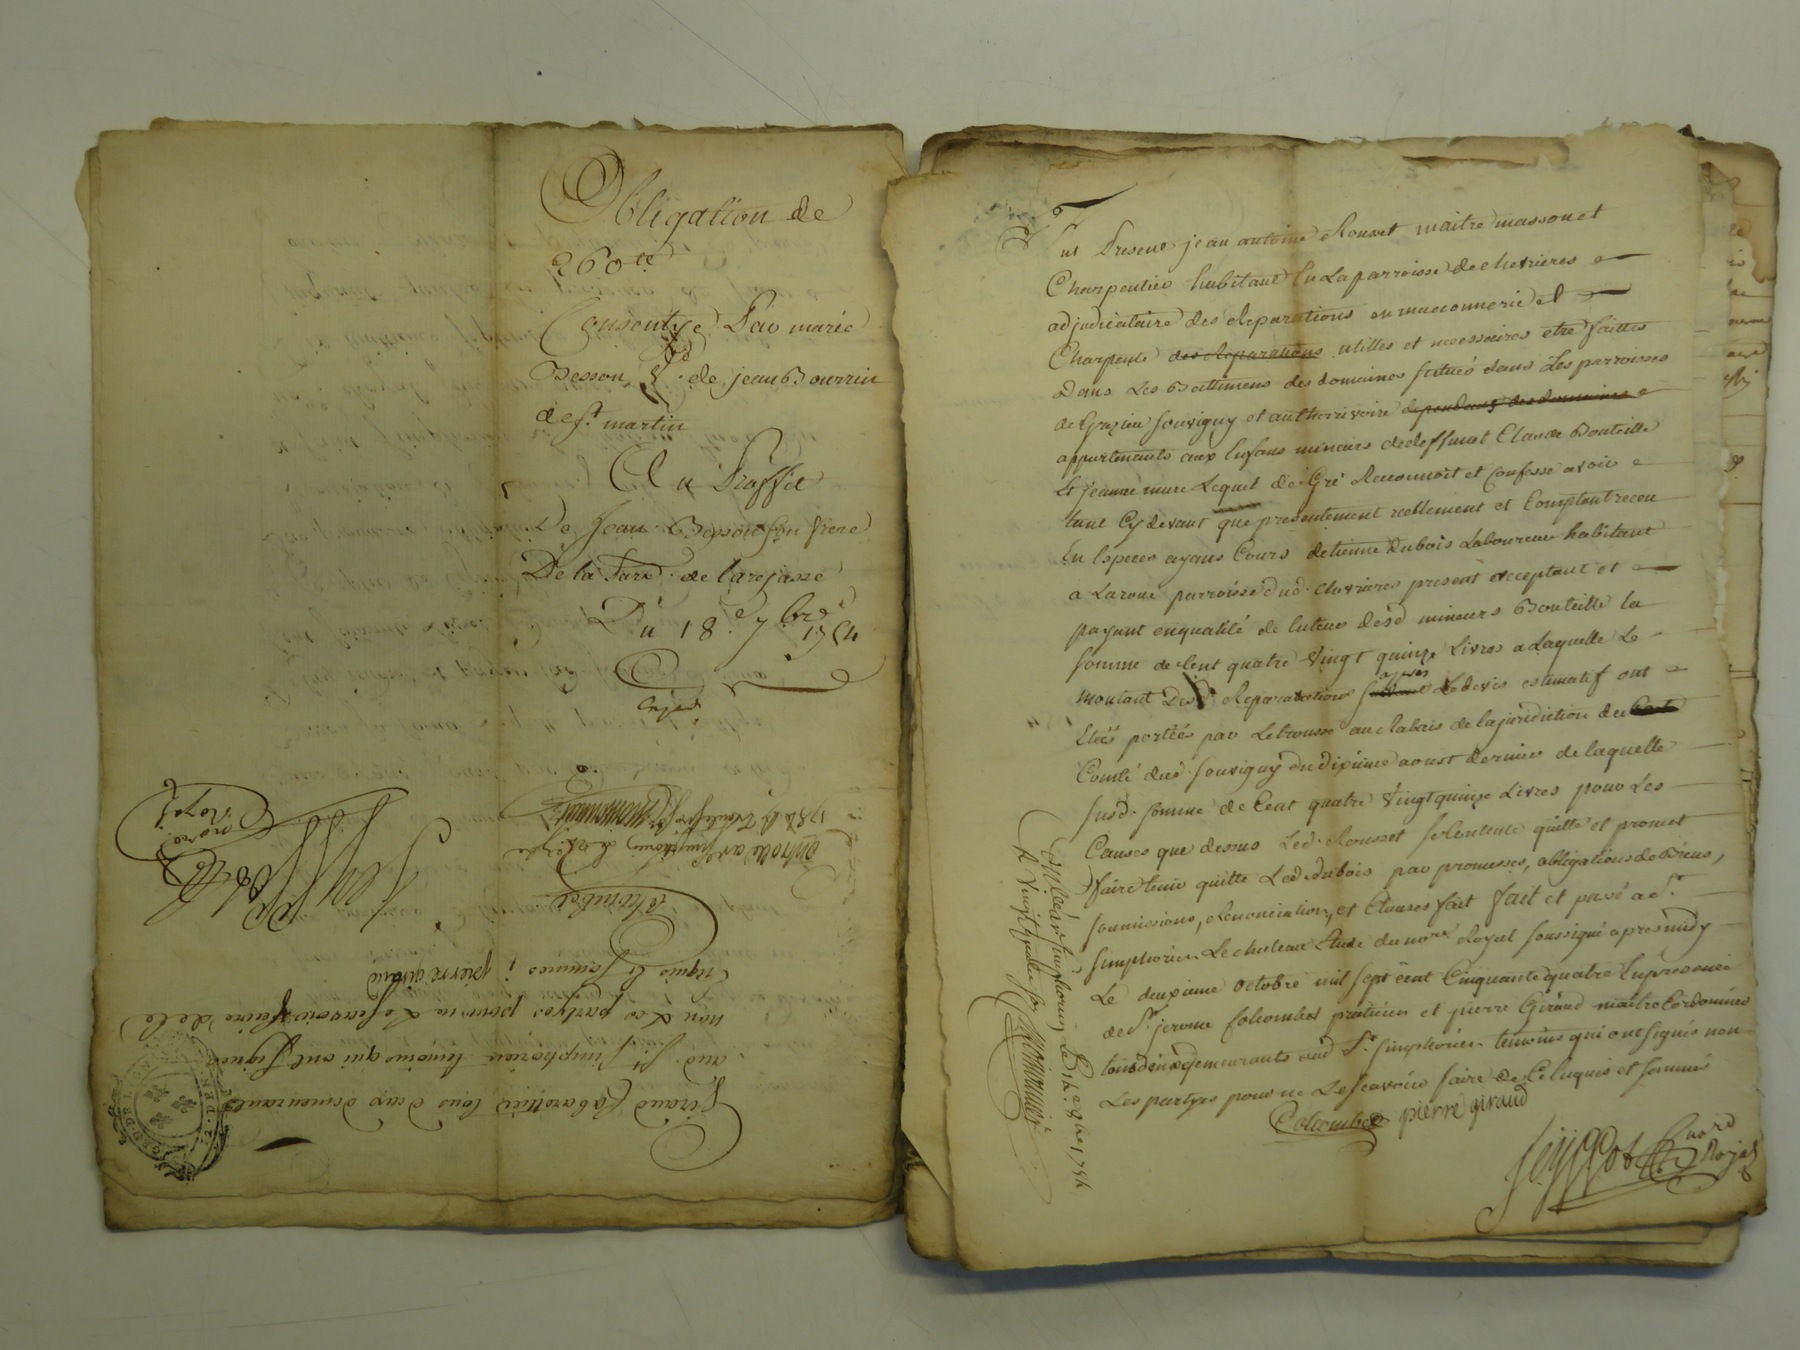 Obligation de
260 tt
Consentye Par marie
Besson, fe. de jean Bourrin
de st. martin
Au Proffit
De Jean Besson son frere
De la Fare de larejasse
Du 18.e 7bre 1754
Giraud Cabarettier tous deux demeurants
aud. St. simphorien temoins qui ont signé
non Les partyes pour ne le scavoir faire de ce
enquis et sommés ; pierre giraud
Colombet
nore.
Royal
Fut Present jean antoine Rousset maitre masson et
Charpentier habitant En La parroisse de chevrieres
adjudicataire des Reparations en maconnerie et
Charpente des Reparations utilles et necessaires etre faittes
Dans Les Battimens des domaines situés dans Les parroisses
de Grezieu souvigny et authorivoire dependants des domaines
appartenants aux Enfans mineurs de deffunt Claude Bouteille
Et jeanne mure Lequel de Gré Reconnoit et Confesse avoir
tant Cy devant que presentement reellement et Comptant receu
En Especes ayans Cours detienne dubois Laboureur habitant
a Laroue parroisse dud. Chevrieres present acceptant et
payant en qualité de tuteur desd mineurs Bouteille la
somme de Cent quatre Vingt quinze Livres a Laquelle Le
montant Desd Reparations apres Le devis estimatif ont
Etés portées par Letrousse au Rabais de la juridiction du
Comté dud. souvigny du dixieme aoust dernier de laquelle
susd. somme de Cent quatre Vingt quinze Livres pour Les
Causes que dessus Led. Rousset se Contente quitte et promet
faire tenir quitte Led. dubois par promesses, obligations de Biens,
soumissions, Renonciations, et Clauses fait fait et passé a St.
simphorien Le chateau Etude du nore Royal soussigné apres midy
Le deuxieme octobre mil sept cent Cinquante quatre En presence
de Sr. jerome Colombet praticien et pierre Giraud maitre Cordonnier
tous deux demeurants aud St. simphorien temoins qui ont signés non
Les partyes pour ne Le scavoir faire de Ce Enquis et sommés
Colombet pierre giraud
nore
Royal